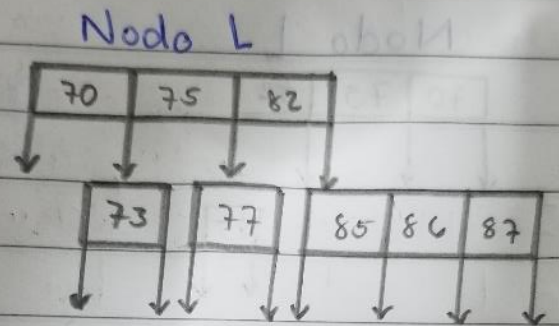 Nodo L
70 75 82
73 77 85 86 87